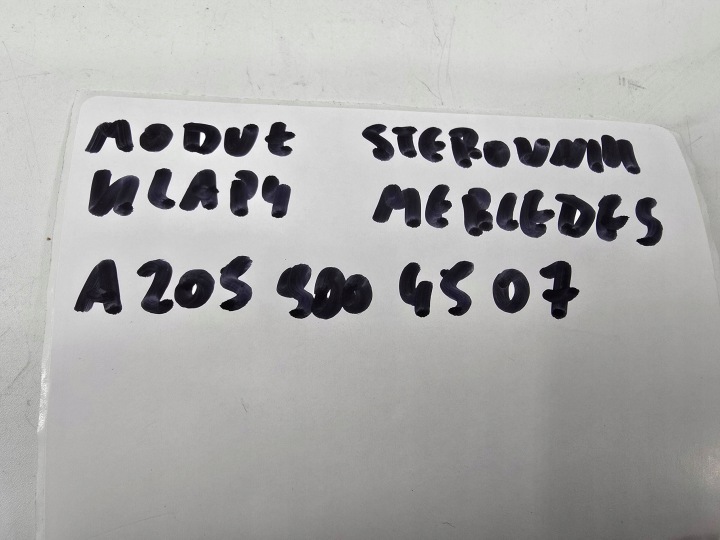 MODUŁ STEROWNIK
KLAPY MERCEDES
A 205 900 45 07